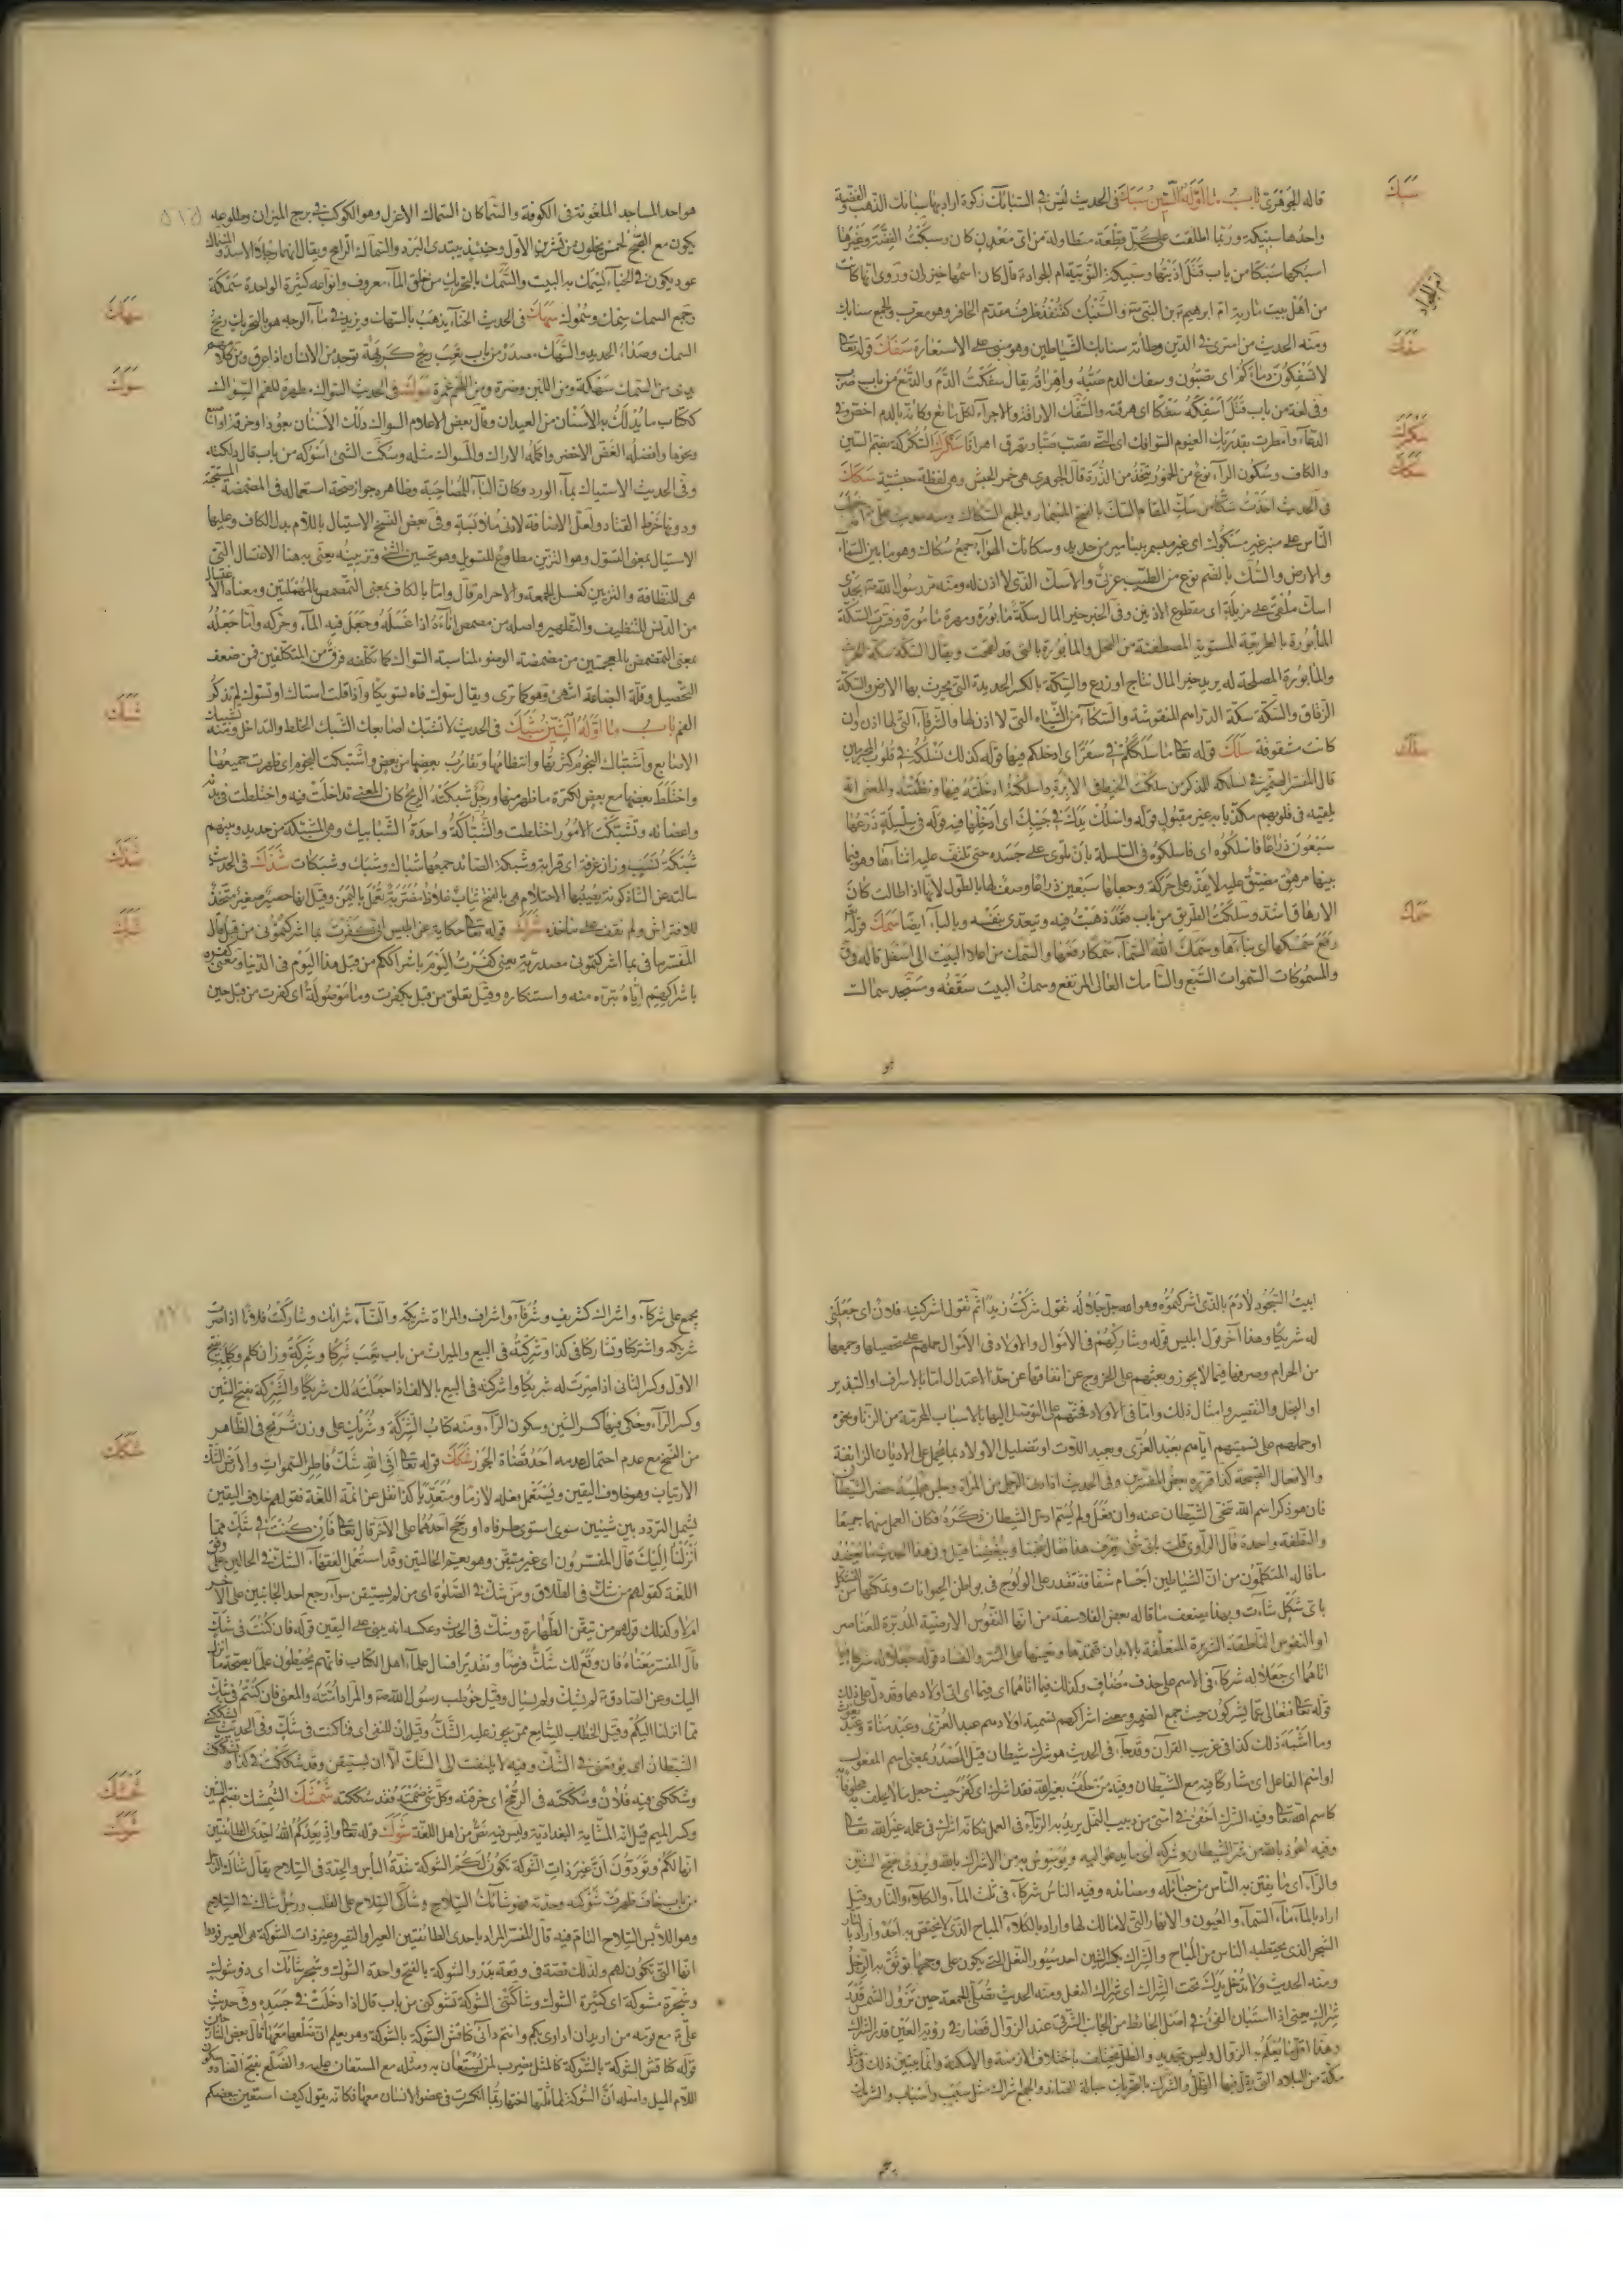 قاله الجوهري باب ما اوله السين سبك في الحديث ليس في السبائك زكوة اراد بها سبائك الذهب والفضة
سبك
واحدها سبيكة وربما اطلقت على كل قطعة متطاولة من اى معدن كان وسبكت الفضة وغيرها
اسبكها سبكا من باب قتل اذبتها وسبيكة النوبية ام الجواد ع قال كان اسمها خيزران وروى انها كانت
ام الجواد
من اهل بيت مارية ام ابرهيم بن النبى ص والسنبك كقنفذ طرف مقدم الحافر وهو معرب والجمع سنابك
ومنه الحديث من استرى في الدين وطأته سنابك الشياطين وهو مبنى على الاستعارة سفك قوله تعا
سفك
لا تسفكون دماءكم اى تصبون وسفك الدم صبه واهراقه يقال سفكت الدم والدمع من باب ضرب
وفى لغة من باب قتل اسفكه سفكا اى هرقته والسفك الاراقة والاجراء لكل مائع وكانه بالدم اخص وفى
الدعاء وامطرت بقدرتك الغيوم السوافك اى التى تصب صبا وتهرق اهراقا سكرك السكركة بضم السين
سكرك
والكاف وسكون الراء نوع من الخمور يتخذ من الذرة قال الجوهري هى خمر الحبش وهى لفظة حبشية سكك
سكك
في الحديث اخذت سكا من سك المقام السك بالفتح المسمار والجمع السكاك ومنه حديث على ع خطب
الناس على منبر غير مسكوك اى غير مسمر بمسامير من حديد وسكائك الهواء جمع سكاك وهو ما بين السماء
والارض والسك بالضم نوع من الطيب عربى والاسك الذى لا اذن له ومنه مر رسول الله ص بجدى
اسك ملقى على مزبلة اى مقطوع الاذنين وفى الخبر خير المال سكة مابورة ومهرة مامورة وفسرت السكة
المأبورة بالطريقة المستوية المصطفة من النخل والمأبورة بالتى قد لقحت ويقال السكة سكة الحرث
والمأبورة المصلحة له يريد خير المال نتاج او زرع والسكة بالكسر الحديدة التى يحرث بها الارض والسكة
الزقاق والسكة سكة الدراهم المنقوشة والسكاء من الشياه التى لا اذن لها والشرفاء التى لها اذن وان
كانت مشقوقة سلك قوله تعا ما سلككم في سقر اى ادخلكم فيها قوله كذلك نسلكه في قلوب المجرمين
سلك
قال المفسر الضمير في نسلكه للذكر من سلكت الخيط في الابرة واسلكته ادخلته فيها ونظمته والمعنى انه
يلقيه في قلوبهم مكذبا به غير مقبول قوله واسلك يدك في جيبك اى ادخلها فيه قوله في سلسلة ذرعها
سبعون ذراعا فاسلكوه اى فاسلكوه في السلسلة بان تلوى على جسده حتى تلتف عليه اثناءها وهو فيما
بينها مرهق مضيق عليه لا يقدر على حركة وجعلها سبعين ذراعا وصف لها بالطول لانها اذا طالت كان
الارهاق اشد وسلكت الطريق من باب قعد ذهبت فيه ويتعدى بنفسه وبالباء ايضا سمك قوله
سمك
رفع سمكها اى بناءها وسمك الله السماء سمكا رفعها والسمك من اعلا البيت الى اسفل قاله في ق
والمسموكات السموات السبع والسامك العالى المرتفع وسمك البيت سقفه ومسجد سماك
هو
هو احد المساجد الملعونة في الكوفة والسماكان السماك الاعزل وهو الكوكب في برج الميزان وطلوعه
يكون مع الصبح لخمس يخلون من تشرين الاول وحينئذ يبتدى البرد والسماك الرامح ويقال انهما رجلا الاسد والسماك
عود يكون في الخباء يسمك به البيت والسمك بالتحريك من خلق الماء معروف وانواعه كثيرة الواحدة سمكة
وجمع السمك سماك وسموك سهك في الحديث الحناء يذهب بالسهك ويزيد في ماء الوجه هو بالتحريك ريح
سهك
السمك وصداء الحديد والسهك مصدر من باب تعب ريح كريهة توجد من الانسان اذا عرق ومن كلامهم
يدى من السمك سهكة ومن اللبن وضرة ومن اللحم غمرة سوك في الحديث السواك مطهرة للفم السواك
سوك
ككتاب ما يدلك به الاسنان من العيدان وقال بعض الاعلام السواك دلك الاسنان بعود او خرقة او اصبع
ونحوها وافضله الغض الاخضر واكمله الاراك والمسواك مثله وسكت الشئ اسوكه من باب قال دلكته
وفى الحديث الاستياك بماء الورد وكان الباء للمصاحبة وظاهره جواز صحة استعماله في المضمضة المستحبة
ودونها خرط القتاد ولعل الاضافة لادنى ملابسة وفى بعض النسخ الاستيال باللام بدل الكاف وعليها
الاستيال بمعنى التسول وهو التزين مطاوع للتسويل وهو تحسين الشئ وتزيينه يعنى به هنا الاغتسال التى
هى للنظافة والتزيين كغسل الجمعة والاحرام قال واما بالكاف بمعنى التمصمص بالمهملتين ومعناه الاغتسال
من الدنس للتنظيف والتطهير واصله من مصمص اناءه اذا غسله وجعل فيه الماء وحركه واما جعله
بمعنى التمضمض بالمعجمتين من مضمضة الوضوء لمناسبة السواك كما تكلفه فرق من المتكلفين فمن ضعف
التحصيل وقلة البضاعة انتهى وهو كما ترى ويقال سوك فاه تسويكا واذا قلت استاك او تسوك لم تذكر
الفم باب ما اوله الشين شبك في الحديث لا تشبك اصابعك الشبك الخلط والتداخل ومنه تشبيك
شبك
الاصابع واشتباك النجوم كثرتها وانتظامها وتقارب بعضها من بعض واشتبكت النجوم اى ظهرت جميعها
واختلط بعضها مع بعض لكثرة ما ظهر منها ورجل شبكته الريح كان المعنى تداخلت فيه واختلطت في بدنه
واعضائه وتشبكت الامور اختلطت والشباكة واحدة الشبابيك وهى المشبكة من حديد وبينهم
شبكة نسب وزان غرفة اى قرابة وشبكة الصائد جمعها شباك وشبك وشبكات شذك في الحديث
شذك
سالته عن الشاذكونة يصيبها الاحتلام هى بالفتح ثياب غلاظ مضربة تعمل باليمن وقيل انها حصير صغير متخذ
للافتراش ولم نقف على ماخذه شرك قوله تعا حكاية عن ابليس انى كفرت بما اشركتمونى من قبل قال
شرك
المفسر ما في بما اشركتمونى مصدرية يعنى كفرت اليوم باشراككم من قبل هذا اليوم في الدنيا ومعنى كفره
باشراكهم اياه تبرؤه منه واستنكاره وقيل تعلق من قبل بكفرت وما موصولة اى كفرت من قبل حين
ابيت السجود لادم بالذى اشركتموه وهو الله جل جلاله تقول شركت زيدا ثم تقول اشركنيه فلان اى جعلنى
له شريكا وهذا آخر قول ابليس قوله وشاركهم في الاموال والاولاد في الاموال حملهم على تحصيلها وجمعها
من الحرام وصرفها فيما لا يجوز وبعثهم على الخروج عن انفاقها عن حد الاعتدال اما بالاسراف والتبذير
او البخل والتقتير وامثال ذلك واما في الاولاد فحثهم على التوصل اليها بالاسباب المحرمة من الزنا ونحوه
او حملهم على تسميتهم اياهم بعبد العزى وعبد اللات او تضليل الاولاد بما يحمل على الاديان الزائغة
والافعال القبيحة كذا قرره بعض المفسرين وفى الحديث اذا دنا الرجل من المراة وجلس مجلسه حضر الشيطان
فان هو ذكر اسم الله تنحى الشيطان عنه وان فعل ولم يسم ادخل الشيطان ذكره فكان العمل منهما جميعا
والنطفة واحدة قال الراوى قلت باى شئ يعرف هذا قال بحبنا وببغضنا قيل وفى هذا الحديث ما يعضد
ما قاله المتكلمون من ان الشياطين اجسام شفافة تقدر على الولوج في بواطن الحيوانات ويمكنها التشكل
باى شكل شاءت وبهذا يضعف ما قاله بعض الفلاسفة من انها النفوس الارضية المدبرة للعناصر
او النفوس الناطقة الشريرة المتعلقة بالابدان تمدها وتعينها على الشر والفساد قوله جعلا له شركاء فيما
اتاهما اى جعلا له شركاء في الاسم على حذف مضاف وكذلك فيما اتاهما اى فيما اتى اولادهما وقد دل على ذلك
قوله تعا فتعالى عما يشركون حيث جمع الضمير ومعنى اشراكهم تسمية اولادهم عبد العزى وعبد مناة وعبد يغوث
وما اشبه ذلك كذا في غريب القرآن وقد جاء في الحديث هو شرك شيطان قيل المصدر بمعنى اسم المفعول
او اسم الفاعل اى مشاركا فيه مع الشيطان وفيه من حلف بغير الله فقد اشرك اى كفر حيث جعل ما لا يحلف به محلوفا به
كاسم الله تعا وفيه الشرك اخفى في امتى من دبيب النمل يريد به الرياء في العمل فكانه اشرك في عمله غير الله تعا
وفيه اعوذ بالله من شر الشيطان وشركه اى ما يدعو اليه ويوسوس به من الاشراك بالله ويروى بفتح الشين
والراء اى ما يفتن به الناس من حبائله ومصائده وفيه الناس شركاء في ثلث الماء والكلاء والنار وقيل
اراد بالماء ماء السماء والعيون والانهار التى لا مالك لها واراد بالكلاء المباح الذى لا يختص به احد واراد بالنار
الشجر الذى يحتطبه الناس من المباح والشراك بكسر الشين احد سيور النعل التى يكون على وجهها توثق به الرجل
ومنه الحديث ولا تدخل يدك تحت الشراك اى شراك النعل ومنه الحديث تصلى الجمعة حين تزول الشمس قدر
شراك يعنى اذا استبان الفئ في اصل الحائط من الجانب الشرقى عند الزوال فصار في رؤية العين قدر الشراك
وهذا اقل ما يعلم به الزوال وليس بتحديد والظل يختلف باختلاف الازمنة والامكنة وانما يتبين ذلك في مثل
مكة من البلاد التى يقل فيها الظل والشرك بالتحريك حبالة الصائد والجمع شراك مثل سبب واسباب والشريك
يجمع
يجمع على شركاء واشراك كشريف وشرفاء واشراف والمراة شريكة والنساء شرائك وشاركت فلانا اذا صرت
شريكه واشتركا وتشاركا في كذا وشركته في البيع والميراث من باب تعب شركا وشركة وزان كلم وكلمة بفتح
الاول وكسر الثانى اذا صرت له شريكا واشركته في البيع بالالف اذا جعلته لك شريكا والشركة بفتح الشين
وكسر الراء وحكى فيها كسر الشين وسكون الراء ومنه كتاب الشركة وشريك على وزن شريح في الظاهر
من النسخ مع عدم احتمال العدمه احد قضاة الجور شكك قوله تعا افى الله شك فاطر السموات والارض الشك
شكك
الارتياب وهو خلاف اليقين ويستعمل بفعله لازما ومتعديا كذا نقل عن ائمة اللغة فقولهم خلاف اليقين
يشمل التردد بين شيئين سوى استوى طرفاه او رجح احدهما على الآخر قال تعا فان كنت في شك مما
انزلنا اليك قال المفسرون اى غير متيقن وهو يعم الحالتين وقد استعمل الفقهاء الشك في الحالين على وفق
اللغة كقولهم من شك في الطلاق ومن شك في الصلوة اى من لم يستيقن سواء رجح احد الجانبين على الآخر
ام لا وكذلك قولهم من تيقن الطهارة وشك في الحدث وعكسه انه يبنى على اليقين قوله فان كنت في شك
قال المفسر معناه فان وقع لك شك فرضا وتقديرا فسال علماء اهل الكتاب فانهم يحيطون علما بصحة ما انزل
اليك وعن الصادق ع لم يشك ولم يسال وقيل خوطب رسول الله ص والمراد امته والمعنى فان كنتم في شك
مما انزلنا اليكم وقيل الخطاب للسامع ممن يجوز عليه الشك وقيل ان للنفى اى فما كنت في شك وفى الحديث يشككنى
الشيطان اى يوقعنى في الشك وفيه لا يلتفت الى الشك الا ان يستيقن وقد شككت في كذا وتشككت
وشككنى فيه فلان وشككته في الرمح اى خرقته وكل شئ ضممته فقد شككته شمشك الشمشك بضم الشين
شمشك
وكسر الميم قيل انه المشاية البغدادية وليس فيه نص من اهل اللغة شوك قوله تعا واذ يعدكم الله احدى الطائفتين
شوك
انها لكم وتودون ان غير ذات الشوكة تكون لكم الشوكة شدة البأس والحدة في السلاح يقال شاك الرجل
من باب خاف ظهرت شوكته وحدته فهو شائك السلاح وشاكى السلاح على القلب ورجل شاك في السلاح
وهو اللابس السلاح التام فيه قال المفسر المراد باحدى الطائفتين العير او النفير وغير ذات الشوكة هى العير تودوا
انها التى تكون لهم ولذلك قصة في وقعة بدر والشوكة بالفتح واحدة الشوك وشجر شائك اى ذو شوك
وشجرة مشوكة اى كثيرة الشوك وشاكتنى الشوكة تشوكنى من باب قال اذا دخلت في جسده وفى حديث
على ع مع قومه من اريد ان اداوى بكم وانتم دائى كناقش الشوكة بالشوكة وهو يعلم ان ضلعها معها قال بعض الشارحين
قوله كناقش الشوكة بالشوكة كالمثل يضرب لمن يستعان به ومثله مع المستعان عليه والضلع بفتح الضاد وسكون
اللام الميل واصله ان الشوكة لمماثلتها اختها ربما انكسرت في عضو الانسان معها فكانه يقول كيف استعين ببعضكم